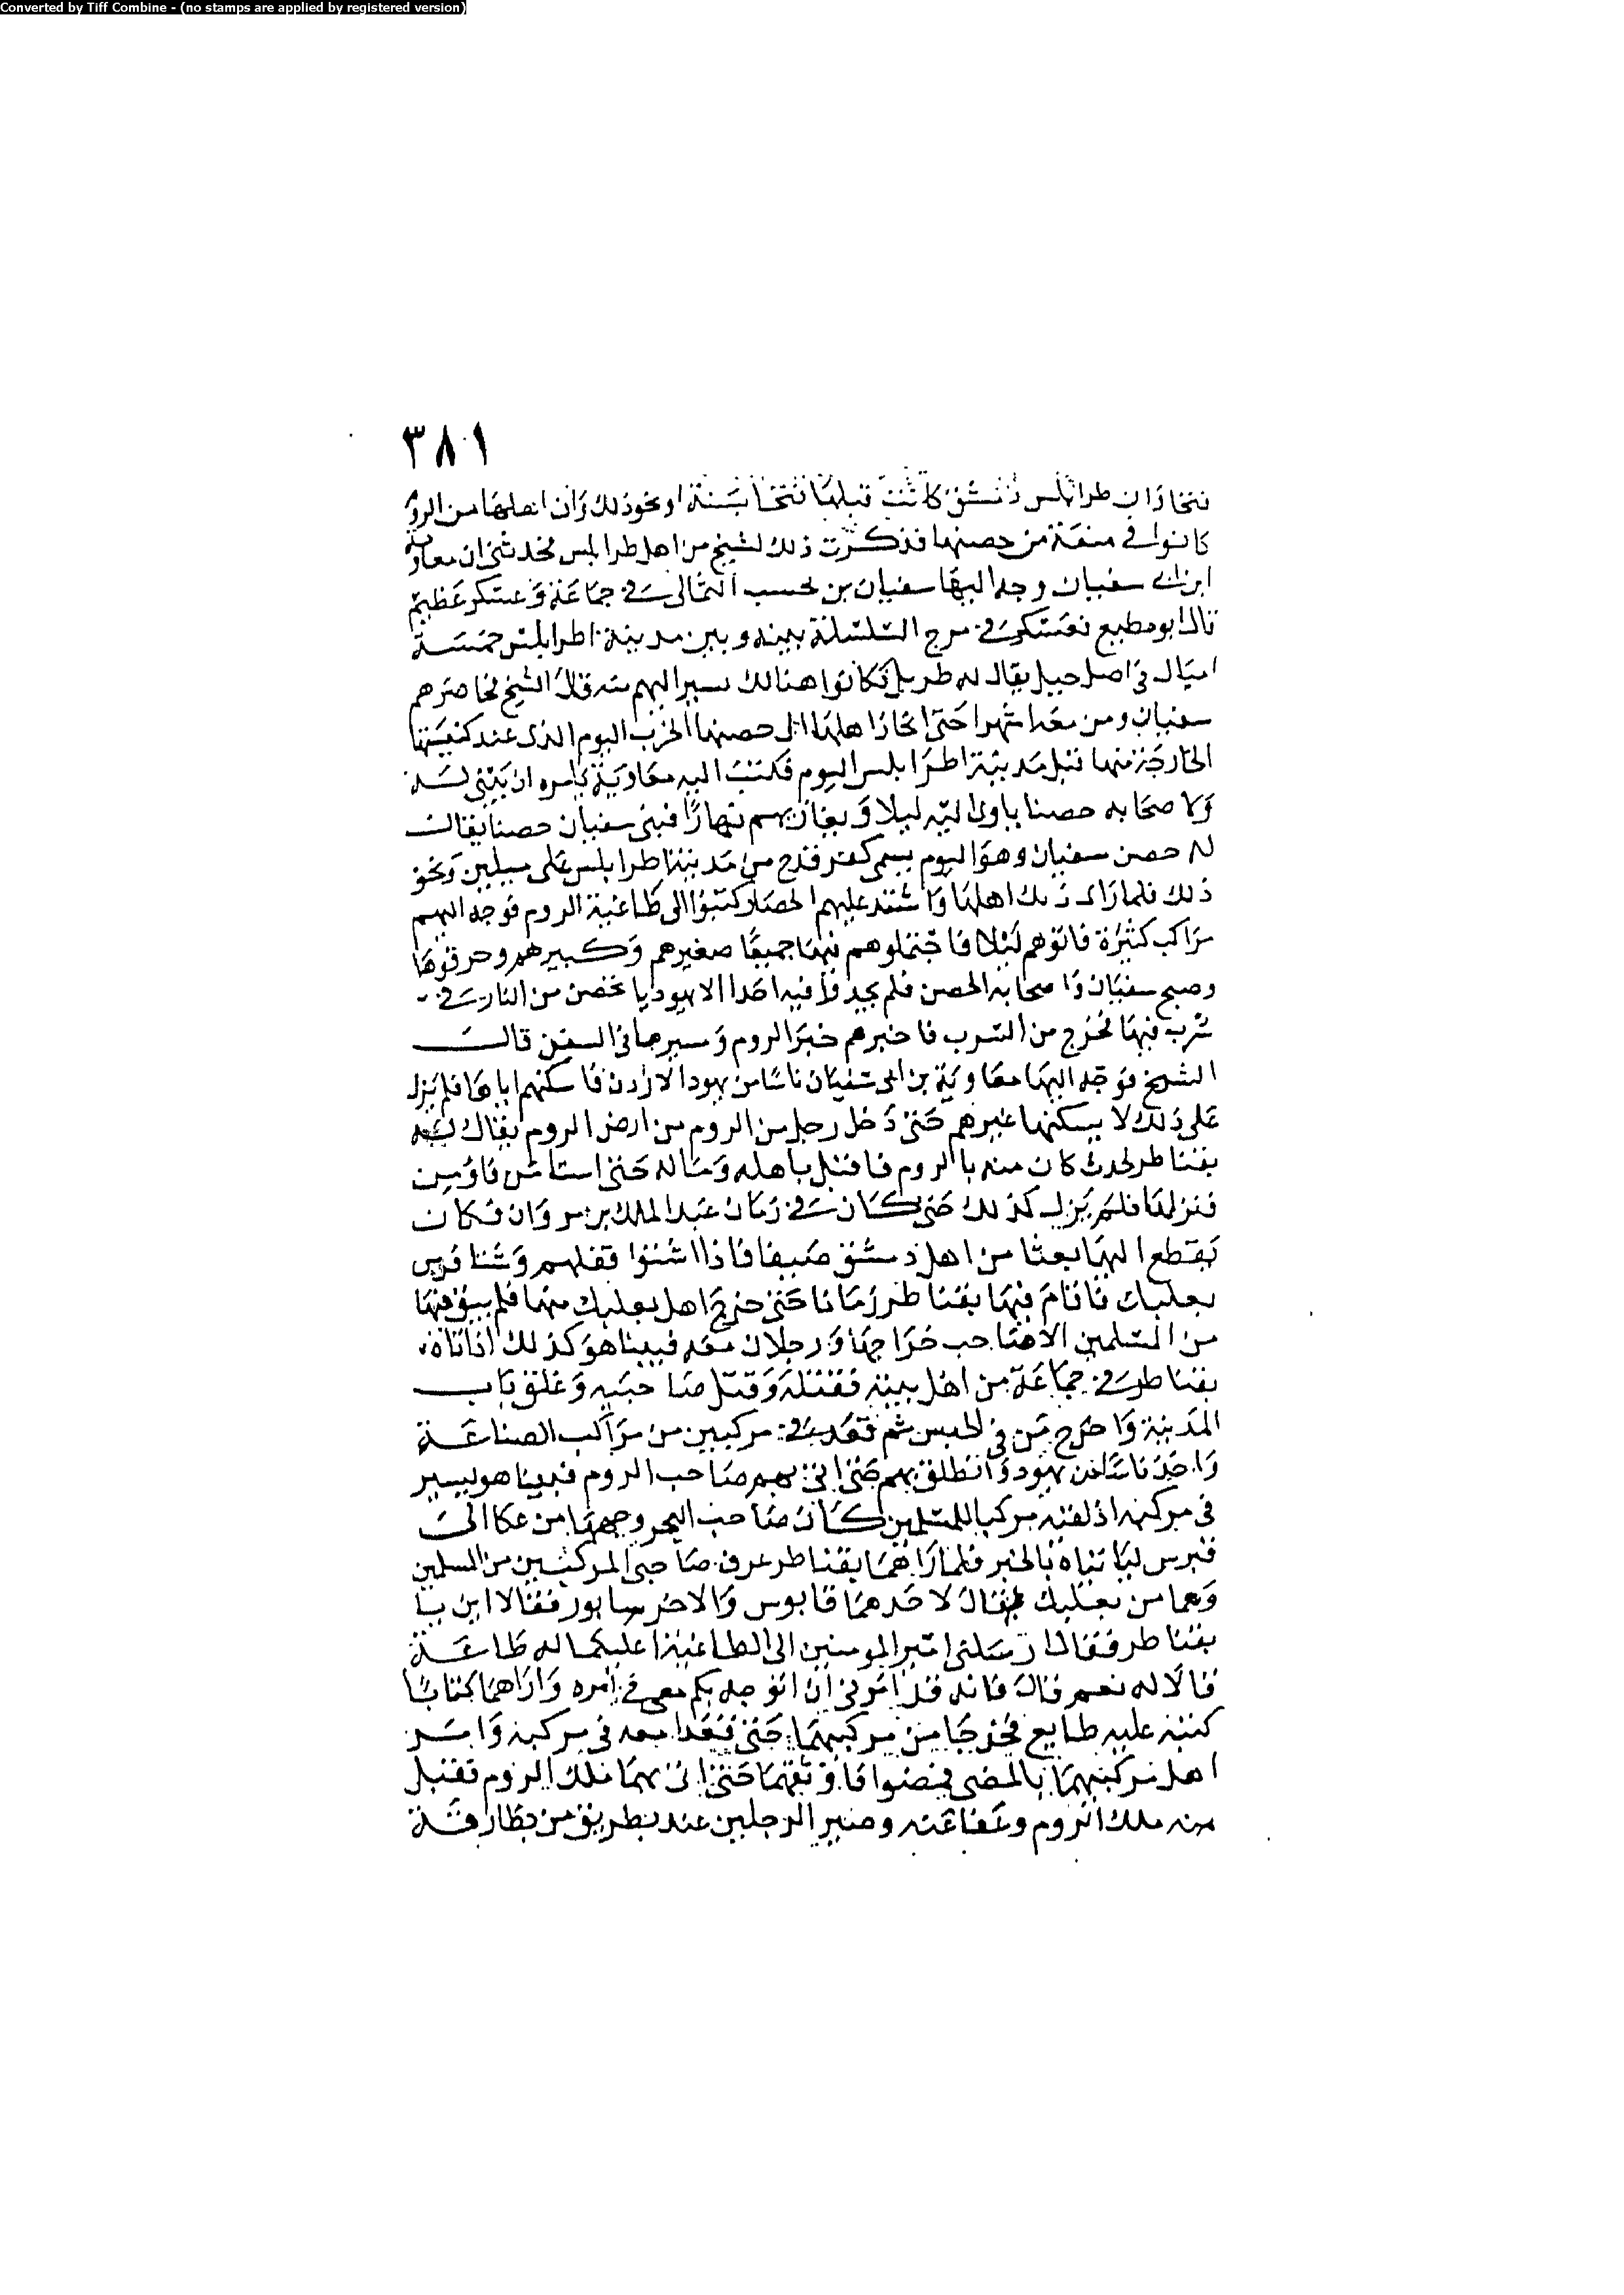 Converted by Tiff Combine - (no stamps are applied by registered version)
٣٨١
فتحا وان طرابلس دمشق كانت قبلها فتحا بسنة او نحو ذلك وان اهلها من الروم
كانوا في منعة من حصنها فذكرت ذلك لشيخ من اهل طرابلس فحدثني ان معاوية
ابن ابي سفيان وجه اليها سفيان بن محسب الثمالي في جماعة وعسكر عظيم
قال ابو مطيع فعسكر في مرج السلسلة بينه وبين مدينة اطرابلس خمسة
اميال في اصل جبل يقال له طربل فكانوا هنالك يسير اليهم منه قال الشيخ فحاصرهم
سفيان ومن معه شهرا حتى انحاز اهلها الى حصنها الخرب اليوم الذي عند كنيستها
الخارجة منها قبل مدينة اطرابلس اليوم فكتب اليه معاوية يامره ان يبني له
ولاصحابه حصنا ياوى اليه ليلا ويغازيهم نهارا فبنى سفيان حصنا يقال
له حصن سفيان وهو اليوم يسمى كفر قدح من مدينة اطرابلس على ميلين ونحو
ذلك فلما راى ذلك اهلها واشتد عليهم الحصار كتبوا الى طاغية الروم فوجه اليهم
مراكب كثيرة فاتوهم ليلا فاحتملوهم فيها جميعا صغيرهم وكبيرهم وحرقوها
وصبح سفيان واصحابه الحصن فلم يجدوا فيه احدا الا يهوديا تحصن من النار في
سرب فيها فخرج من السرب فاخبرهم خبر الروم وسيرها في السفن قال
الشيخ فوجه اليها معاوية بن ابي سفيان ناسا من يهود الاردن فاسكنهم اياها فلم يزل
على ذلك لا يسكنها غيرهم حتى دخل رجل من الروم من ارض الروم يقال له
بقناطر لحدث كان منه بالروم فاقبل باهله وماله حتى استامن فاومن
فنزلها فلم يزل كذلك حتى كان في زمان عبد الملك بن مروان فكان
يقطع اليها بعثا من اهل دمشق صيفا فاذا اشتوا قفلهم وشتا فرس
بعلبك فاقام فيها بقناطر زمانا حتى خرج اهل بعلبك منها فلم يبق فيها
من المسلمين الا صاحب خراجها ورجلان معه فبينا هو كذلك اذ اتاه
بقناطر في جماعة من اهل بيته فقتله وقتل صاحبيه وغلق باب
المدينة واخرج من في الحبس ثم قعد في مركبين من مراكب الصناعة
واخذ ناسا من يهود وانطلق بهم حتى اتى بهم صاحب الروم فبينا هو يسير
في مركبه اذ لقيه مركبا للمسلمين كان صاحب البحر وجهها من عكا الى
قبرس لياتياه بالخبر فلما راهما بقناطر عرف صاحبي المركبين من المسلمين
وهما من بعلبك يقال لاحدهما قابوس والاخر سابور فقالا اين يا
بقناطر فقال ارسلني امير المومنين الى الطاغية اعليكما له طاعة
قالا له نعم قال فانه قد امرني ان اتوجه بكم معي في امره واراهما كتابا
كتبه عليه طابع فخرجا من مركبهما حتى قعدا معه في مركبه وامر
اهل مركبيهما بالمضي فمضوا فاوثقهما حتى اتى بهما ملك الروم فقبل
منه ملك الروم وعفا عنه وصير الرجلين عند بطريق من بطارقة